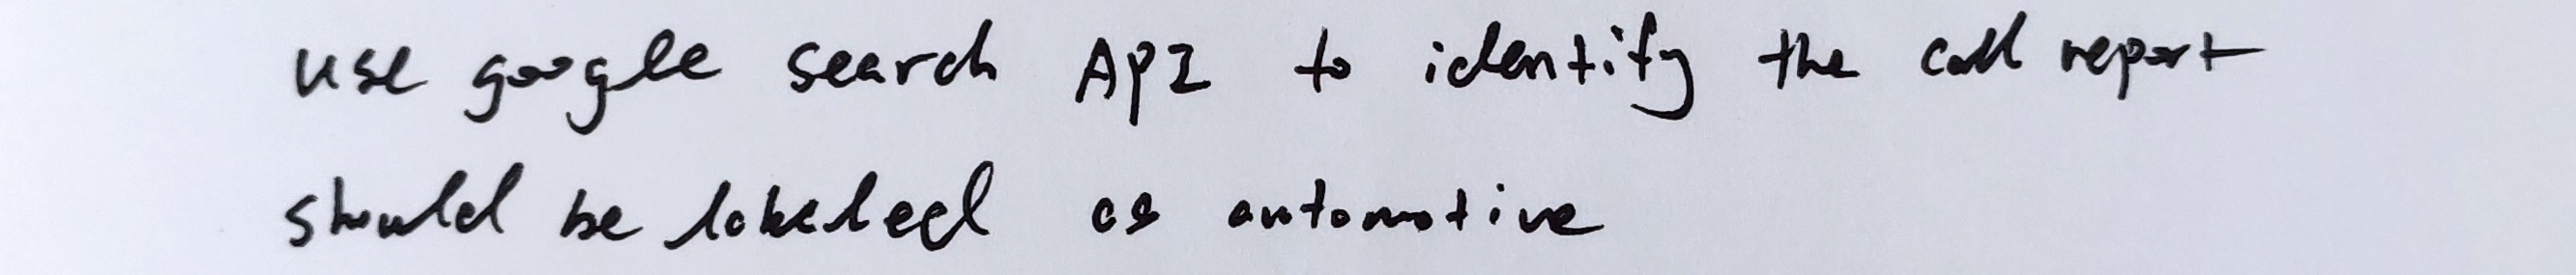 use google search API to identify the call report
should be labeled as automotive